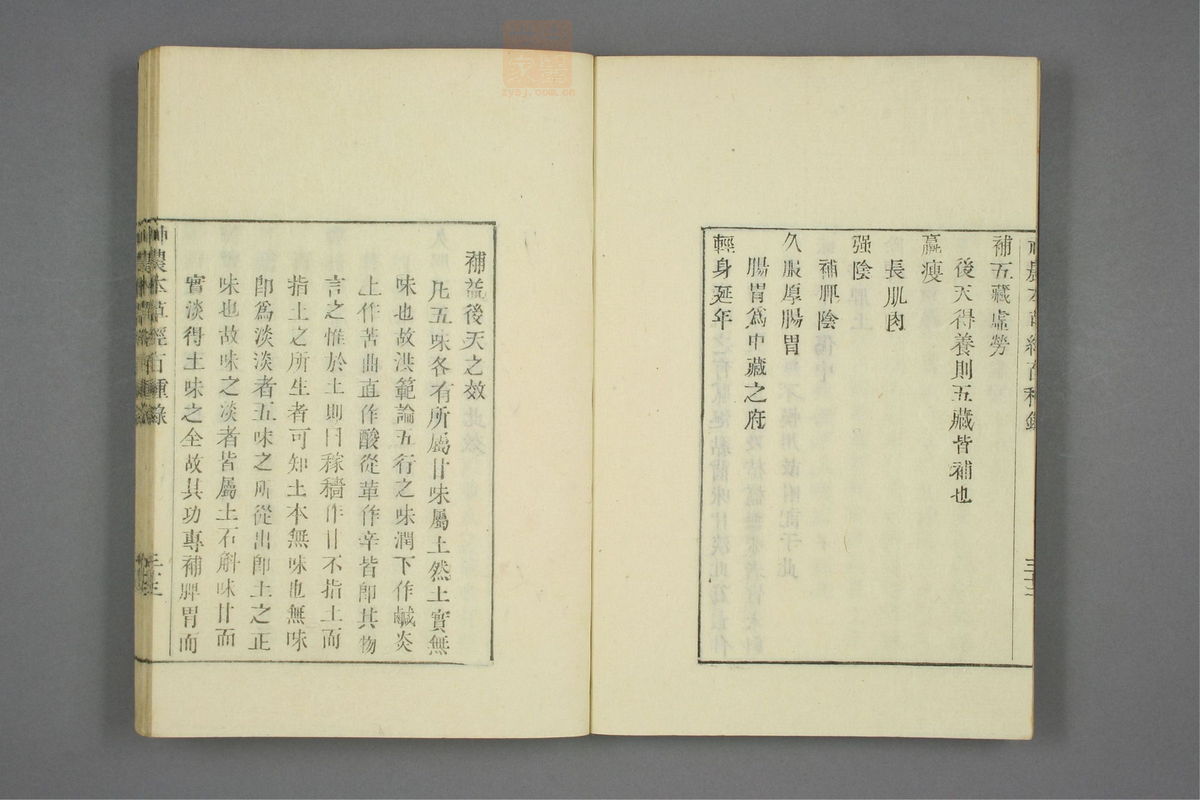 補五藏虛勞
後天得養則五藏皆補也
羸瘦
長肌肉
强陰
補脾陰
久服厚腸胃
腸胃爲中藏之府
輕身延年
補益後天之效
凡五味各有所屬甘味屬土然土實無
味也故洪範論五行之味潤下作鹹炎
上作苦曲直作酸從革作辛皆卽其物
言之惟於土則曰稼穡作甘不指土而
指土之所生者可知土本無味也無味
卽爲淡淡者五味之所從出卽土之正
味也故味之淡者皆屬土石斛味甘而
實淡得土味之全故其功專補脾胃而
神農本草經百種錄
zysj.com.cn